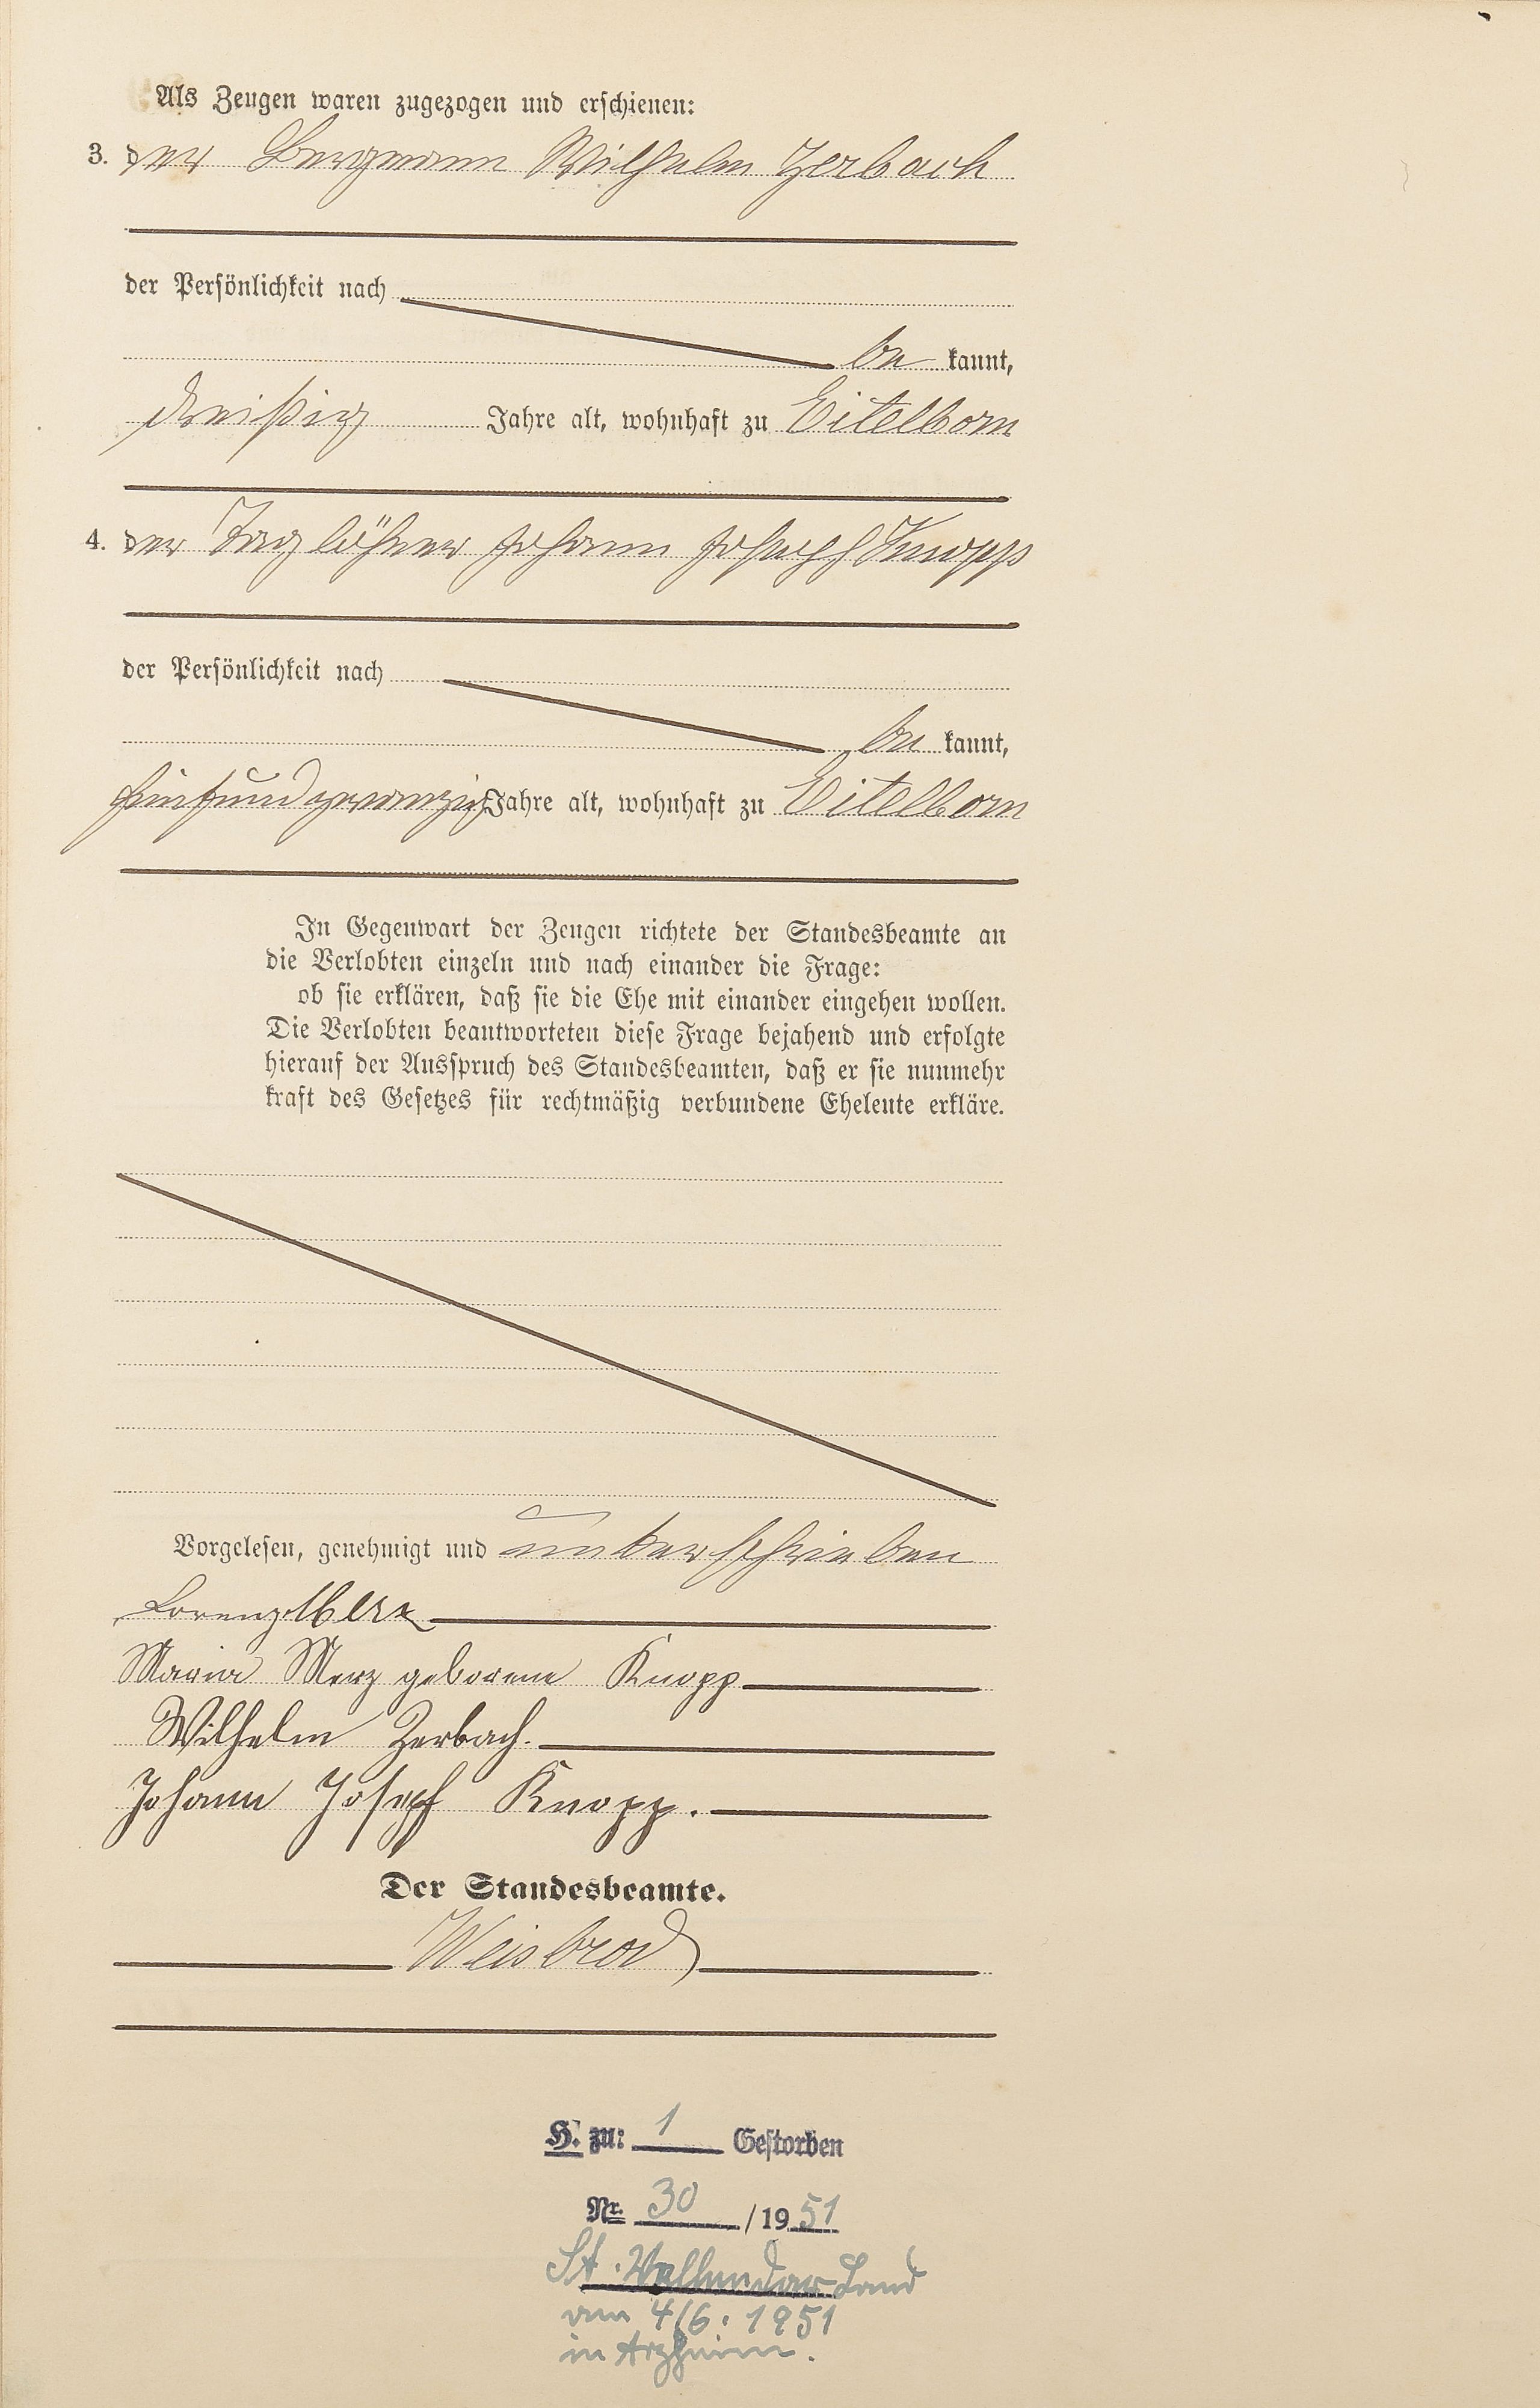 Als Zeugen waren zugezogen und erschienen:
3. der Bergmann Wilhelm Zerbach
der Persönlichkeit nach
be kannt,
dreißig Jahre alt, wohnhaft zu Eitelborn
4. der Taglöhner Johann Joseph Knopp
der Persönlichkeit nach
be kannt,
fünfundzwanzig Jahre alt, wohnhaft zu Eitelborn
In Gegenwart der Zeugen richtete der Standesbeamte an
die Verlobten einzeln und nach einander die Frage:
ob sie erklären, daß sie die Ehe mit einander eingehen wollen.
Die Verlobten beantworteten diese Frage bejahend und erfolgte
hierauf der Ausspruch des Standesbeamten, daß er sie nunmehr
kraft des Gesetzes für rechtmäßig verbundene Eheleute erkläre.
Vorgelesen, genehmigt und unterschrieben
Lorenz Merz
Maria Merz geborene Knopp
Wilhelm Zerbach.
Johann Joseph Knopp.
Der Standesbeamte.
Weisbrod
H. zu: 1 Gestorben
Nr. 30 / 1951
St. Vallendar Land
am 4/6. 1951
in Arzheim.